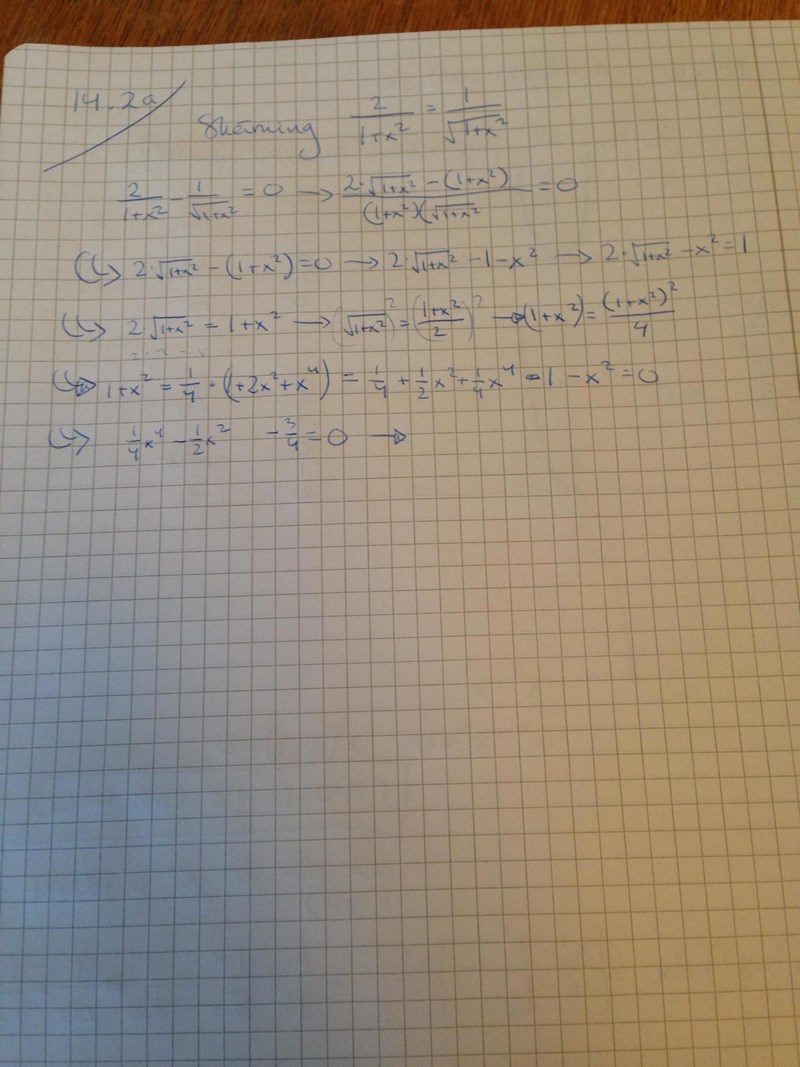 14.2a
Skärning 2/(1+x²) = 1/√(1+x²)
2/(1+x²) - 1/√(1+x²) = 0 → (2·√(1+x²) - (1+x²))/((1+x²)(√(1+x²)) = 0
↳ 2·√(1+x²) - (1+x²) = 0 → 2·√(1+x²) - 1 - x² → 2·√(1+x²) - x² = 1
↳ 2·√(1+x²) = 1+x² → (√(1+x²))² = ((1+x²)/2)² → (1+x²) = (1+x²)²/4
↳ 1+x² = 1/4 · (1+2x²+x⁴) = 1/4 + 1/2x² + 1/4x⁴ - 1 - x² = 0
↳ 1/4x⁴ - 1/2x² - 3/4 = 0 →